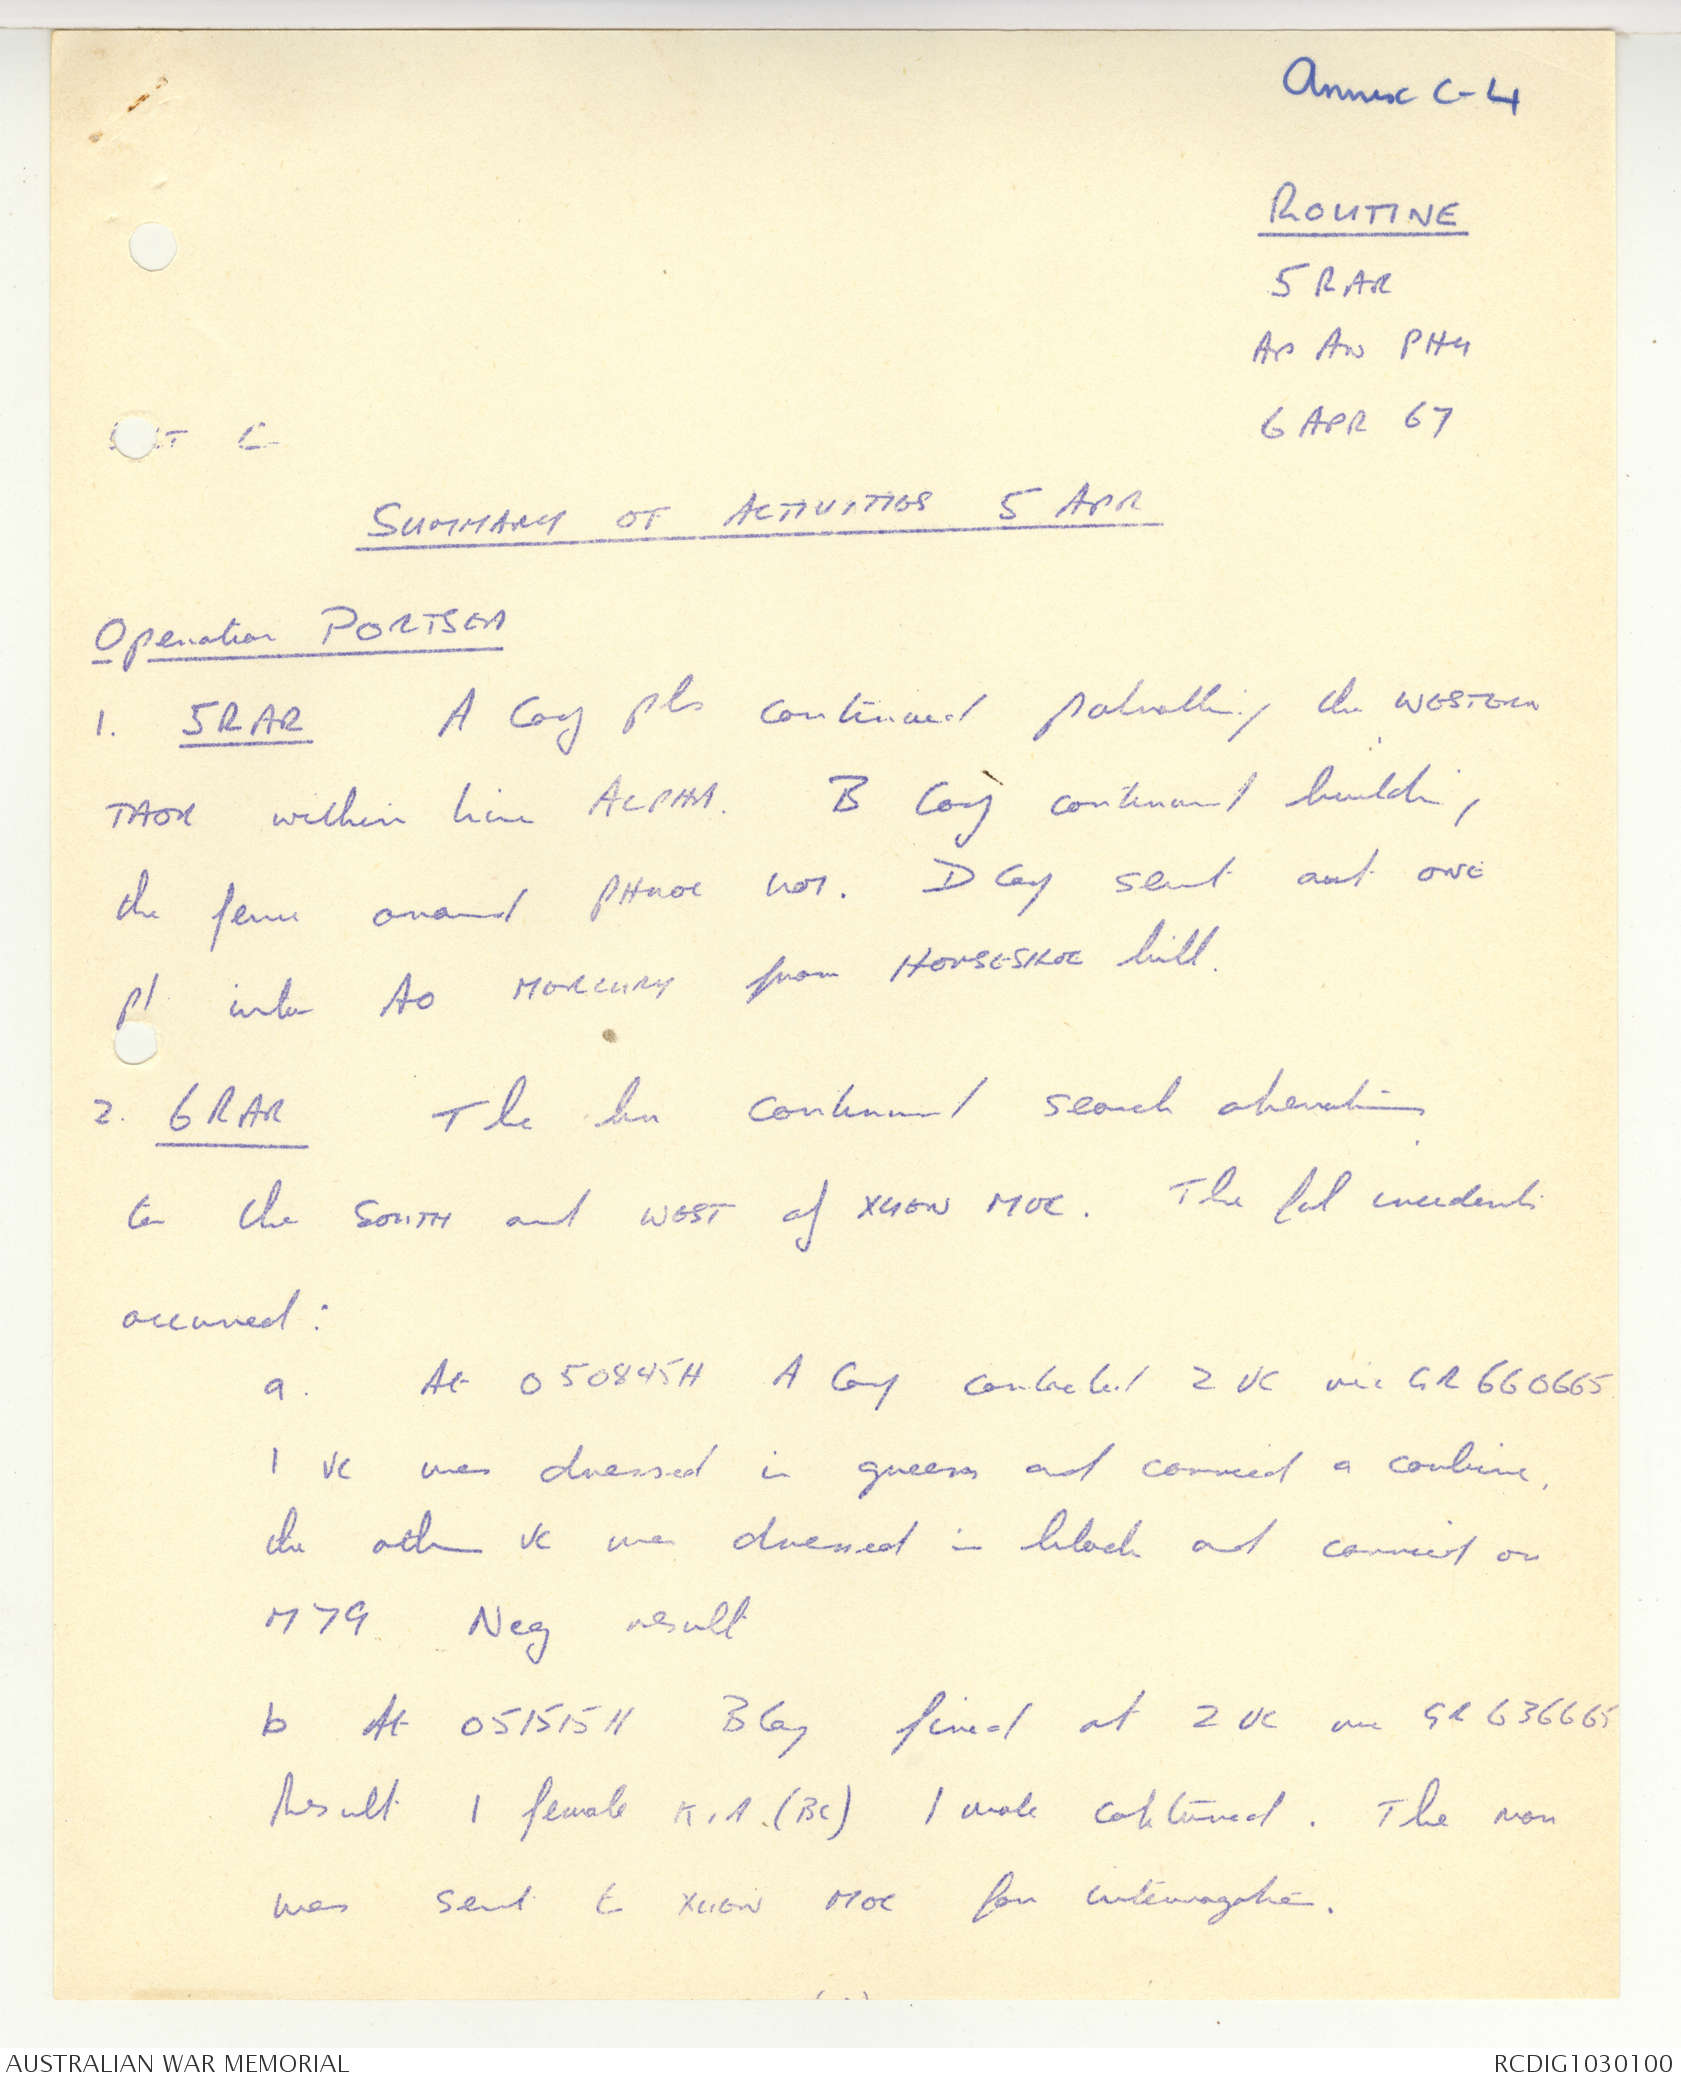 Annex C-4
ROUTINE
5 RAR
AP AN PHU
6 APR 67
SUMMARY OF ACTIVITIES 5 APR
Operation PORTSEA
1. 5RAR A Coy pls continued patrolling the WESTERN
TAOR within line ALPHA. B Coy continued building
the fence around PHUOC HOI. D Coy sent out one
pl into AO MERCURY from HORSESHOE hill.
2. 6RAR The bn continued search operations
to the SOUTH and WEST of XUEN MOC. The fol incidents
occurred:
a. At 050845H A Coy contacted 2 VC vic GR 660665
1 VC was dressed in greens and carried a carbine,
the other VC was dressed in black and carried an
M79 Neg result
b At 051515H B Coy fired at 2 VC vic GR 636665
Result 1 female K.I.A.(BC) 1 male captured. The man
was sent to XUEN MOC for interrogation.
AUSTRALIAN WAR MEMORIAL
RCDIG1030100